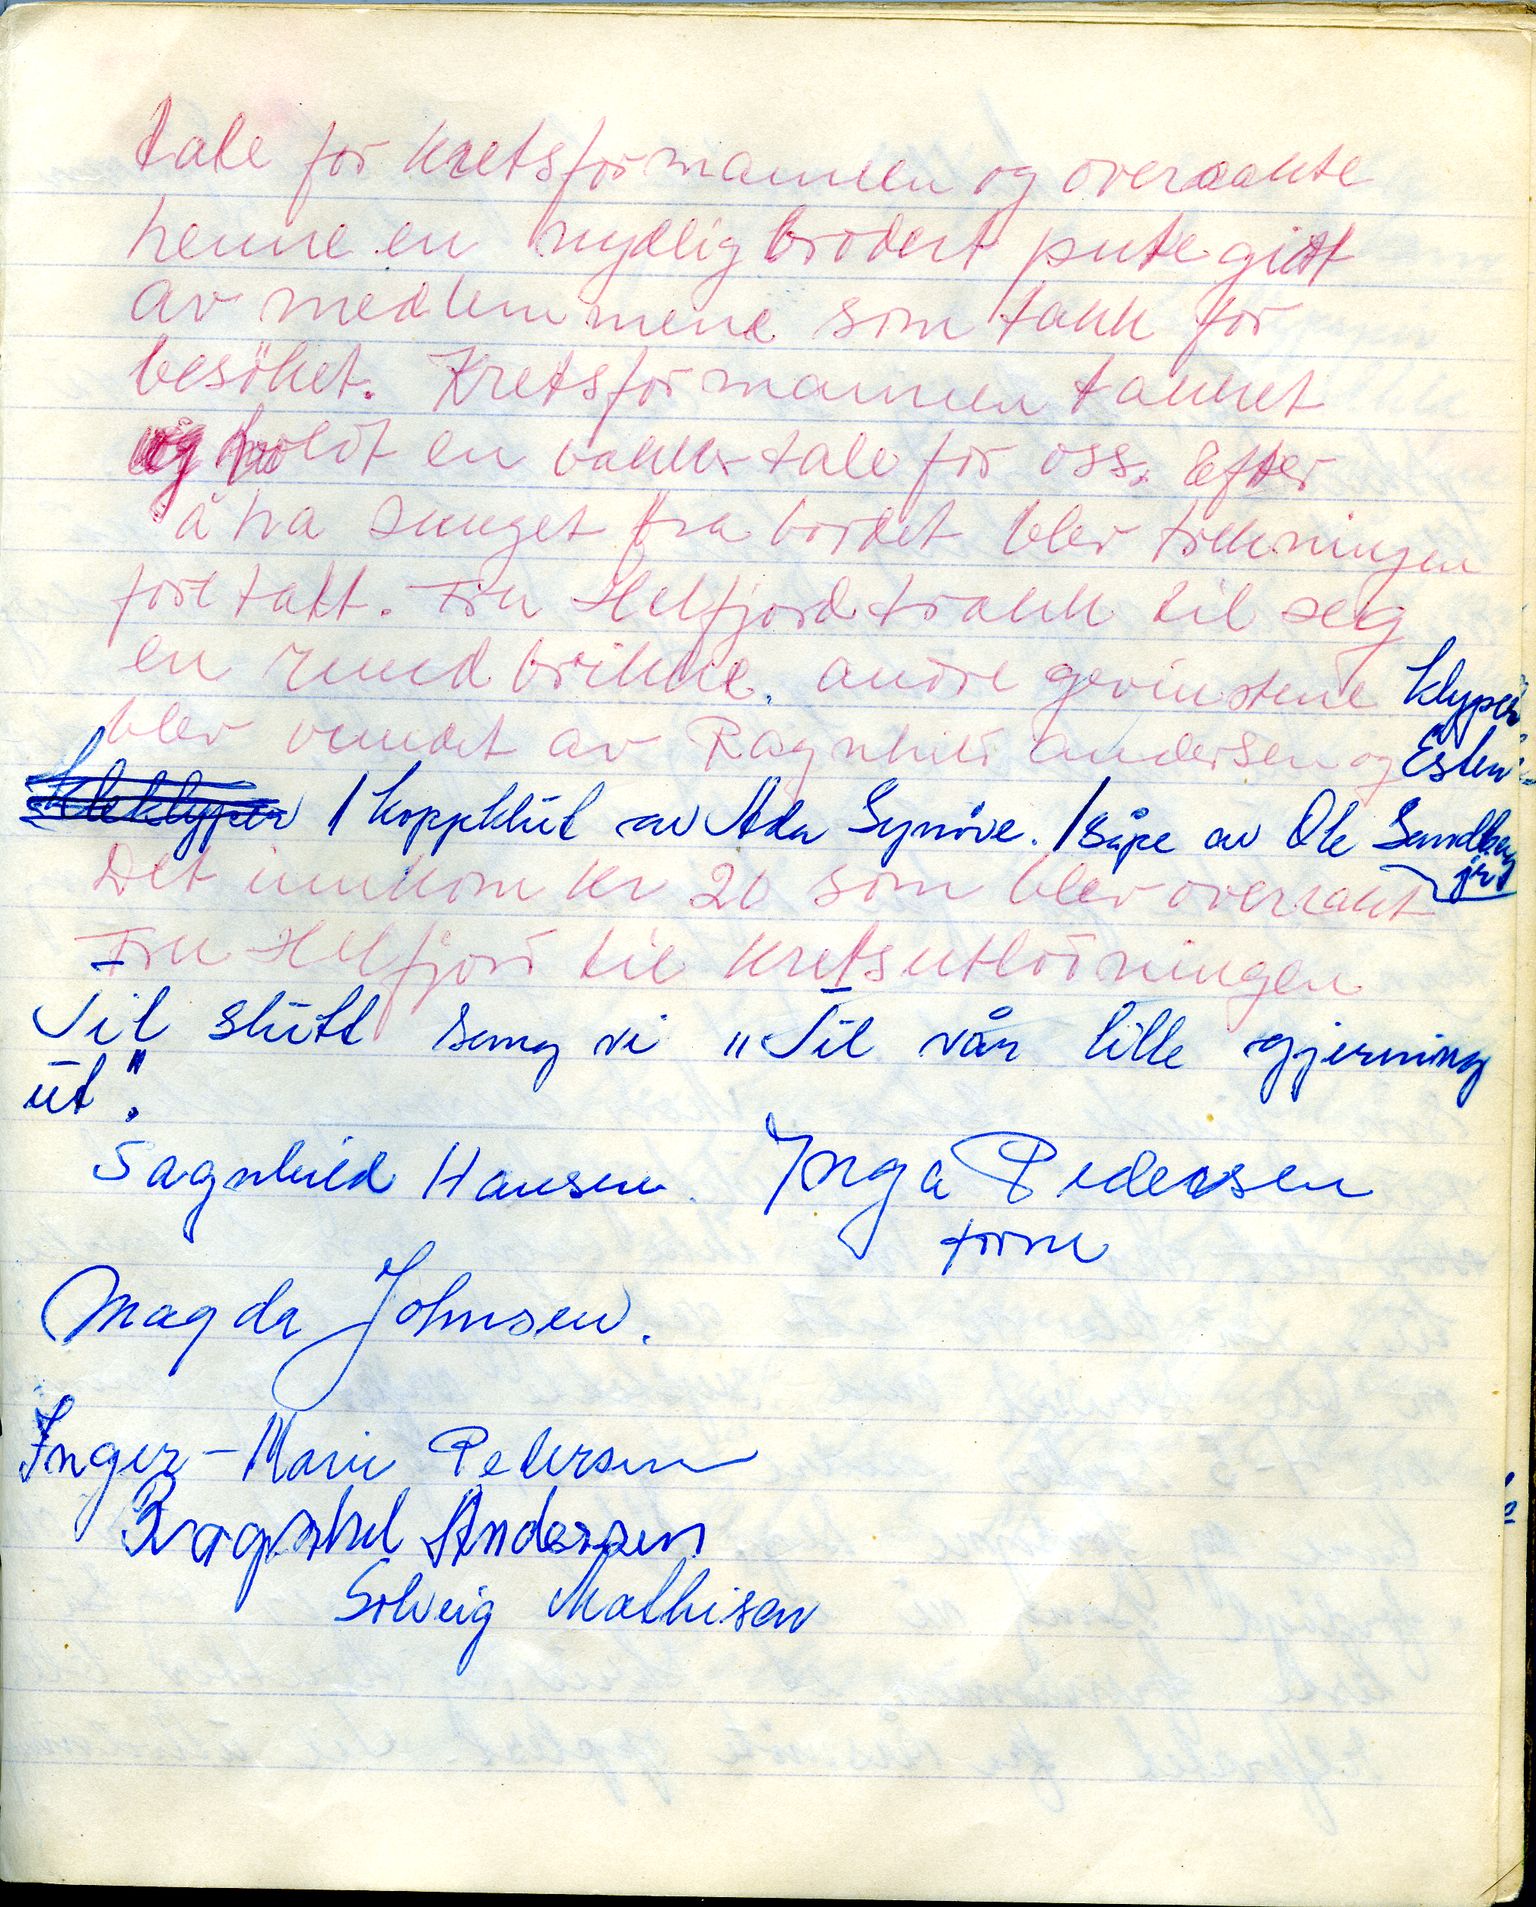 tale for kretsformannen og overrakte
henne en nydlig brodert pute gitt
av medlemmene som takk for
besöket. Kretsformannen takket
og holdt en vakker tale for oss. Efter
å ha sunget fra bordet blev trekningen
foretatt. Fru Helfjord trakk til seg
en rund brikke. andre gevinstene klyper
blev vundet av Ragnhild Andersen og Esten
Kleklyper / koppklut av Ada Synnöve. / såpe av Ole Sandberg
jr.
Det innkom kr 20 som blev overrakt
Fru Helfjord til kretsutlodningen
Til slutt sang vi "Til vår lille gjerning
ut".
Ragnhild Hansen. Inga Pedersen
form
Magda Johnsen.
Inger-Marie Pedersen
Ragnhil Andersen
Solveig Mathisen